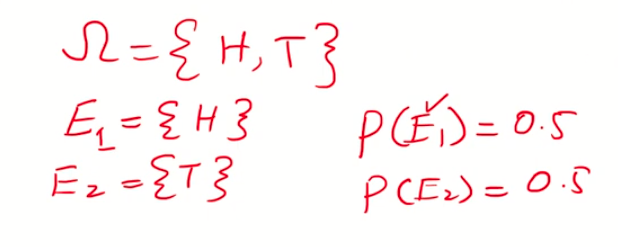 Ω = { H, T }
E₁ = { H } P(E₁) = 0.5
E₂ = {T} P(E₂) = 0.5